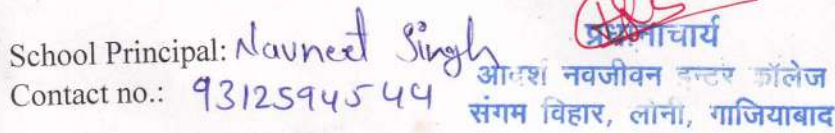 School Principal: Navneet Singh
Contact no.: 9312594544
प्रधानाचार्य
आदर्श नवजीवन इन्टर कॉलेज
संगम विहार, लोनी, गाजियाबाद